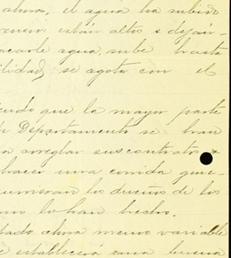 ahora, el agua ha subido
están altos e dejan-
sacarle agua, sube hasta
ilidad, se agota con el
endo que la mayor parte
Departamento se han
a arreglar sus contratos
hacer una comida que
los dueños de los
como lo han hecho.
ahora menos variable
se establecerá una buena